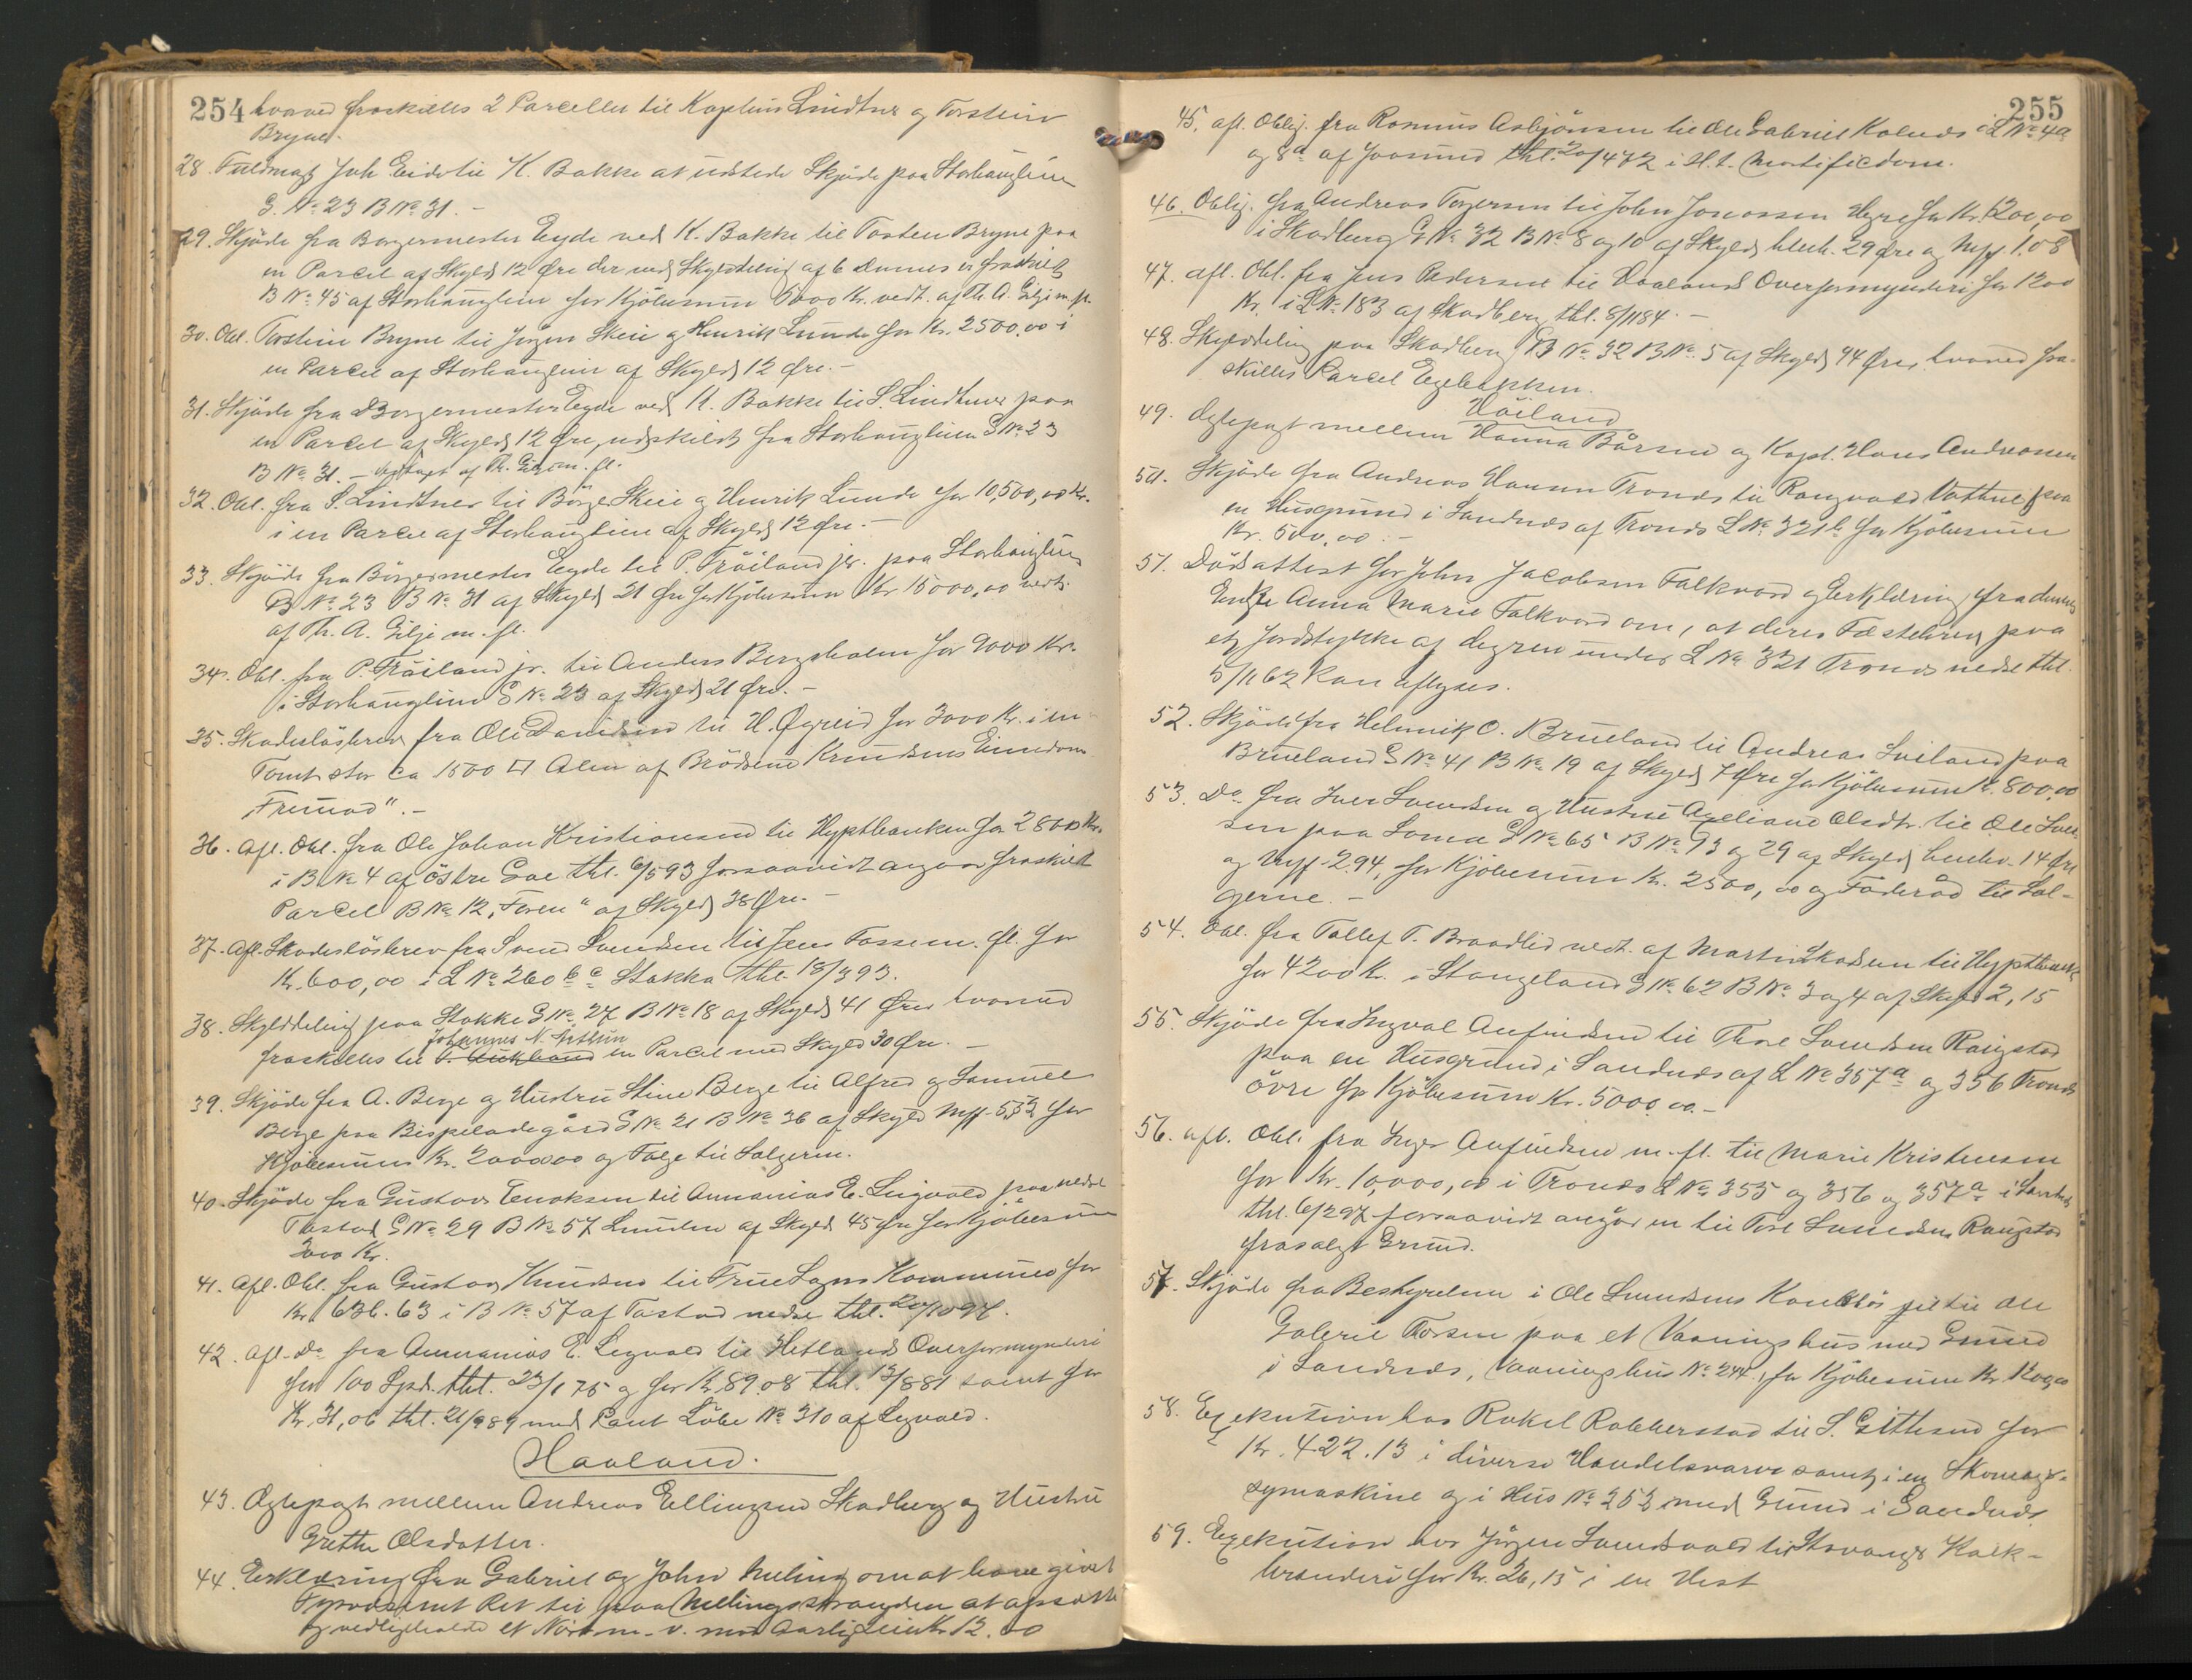 254 hvorved fraskilles 2 Parceller til Kaptein Lindtner og Torstein
Bryne.
28. Fuldmagt Joh Eide til K. Bakke at udstede Skjøde paa Storhauglien
G. No 23 B No 31. -
29. Skjøde fra Borgermester Eyde ved K. Bakke til Tosten Bryne paa
en Parcel af Skyld 12 Øre der ved Skylddeling af 6 dennes er fraskilt
B No 45 af Storhauglien for Kjøbesum 5000 Kr. vedt. af Th. A. Gilje m. fl.
30. Obl. Torstein Bryne til Jørgen Skeie og Henrik Lunde for Kr. 2500.00 i
en Parcel af Storhauglien af Skyld 12 Øre. -
31. Skjøde fra Borgermester Eyde ved K. Bakke til S. Lindtner paa
en Parcel af Skyld 12 Øre, udskildt fra Storhauglien G No 23
B No 31. - vedtaget af Th. Gilje m. fl.
32. Obl. fra S. Lindtner til Børge Skeie og Henrik Lunde for 10,500,00 Kr.
i en Parcel af Storhauglien af Skyld 12 Øre. -
33. Skjøde fra Borgermester Eyde til P. Tröiland jr. paa Storhauglien
B No 23 B No 31 af Skyld 21 Øre for Kjøbesum Kr 15000,00 vedt.
af Th. A. Gilje m. fl.
34. Obl. fra P. Tröiland jr. til Anders Bergsholm for 9000 Kr.
i Storhauglien G No 23 af Skyld 21 Øre. -
35. Skadesløsbrev fra Ole Danielsen til H. Øgreid for 3000 Kr. i en
Tomt stor ca 1500 □ Alen af Brødrene Knudsens Eiendom
Fremad". -
36. Afl. Obl. fra Ole Johan Kristiansen til Hypthbanken for 2800 Kr.
i B No 4 af østre Goe thl. 6/593 forsaavidt angaar fraskilt
Parcel B No 12, "Foren" af Skyld 38 Øre. -
37. Afl. Skadesløsbrev fra Svend Svendsen til Jens Tosse m. fl. for
Kr. 600,00 i L No 260 b c Stokka thl. 18/393.
38. Skylddeling paa Stokke G No 27 B No 18 af Skyld 41 Øre hvorved
Johannes N.
fraskilles til en Parcel med Skyld 30 Øre. -
39. Skjøde fra A. Berge og Hustru Stine Berge til Alfred og Samuel
Berge paa Bispeladegård G No 21 B No 36 af Skyld Mk 5.52 for
Kjøbesum Kr. 20000.00 og Følge til Sælgeren.
40. Skjøde fra Gustav Enoksen til Annanias E. Leigvold paa nedre
Tastad G No 29 B No 57 Lunden af Skyld 45 Øre for Kjøbesum
3000 Kr.
41. Afl. Obl. fra Gustav Knudsen til Frue Sogns Kommune for
Kr. 636.63 i B No 57 af Tastad nedre thl. 20/1097.
42. Afl. Do fra Annanias E. Legvold til Hetlands Overformynderi
for 100 Spd. thl. 23/1 75 og for Kr. 89.08 thl. 13/881 samt for
Kr. 31,06 thl. 21/989 med Pant Löbe No 310 af Legvold.
Haaland.
43. Ægtepagt mellem Andreas Ellingsen Skadberg og Hustru
Grethe Olsdatter.
44. Erklæring fra Gabriel og John Meling om at have givet
Fyrvæsenet Ret til paa Melingsstranden at opsætte
og vedligeholde et m. v. mod aarlig Leie Kr 12.00
255
45. afl. Oblig. fra Rasmus Asbjørnsen til Ole Gabriel Kolnes i L No 4a
og 8a af Joasund thl. 20/472 i H. t. Mortificdom.
46. Oblig. fra Andreas Torgersen til John Jonassen Hegre for Kr. 1200,00
i Skadberg G No 32 B No 8 og 10 af Skyld henh. 29 Øre og Mk 1.08
47. afl. Obl. fra Jens Pedersen til Haaland Overformynderi for 1200
Kr. i L No 183 af Skadberg thl. 8/1184. -
48. Skylddeling paa Skadberg G No 32 B No 5 af Skyld 94 Øre, hvorved fra-
skilles Parcel Egebakken.
Höiland
49. Ægtepagt mellem Hanna Bårsen og Kapt. Hans Andreasen
50. Skjøde fra Andreas Hansen Tronds til Rangvald Vatne paa
en Husgrund i Sandnæs af Tronds L No 321b for Kjøbesum
Kr. 500,00. -
51. Dødsattest for John Jacobsen Falkvord og Erklæring fra dennes
Enke Anna Marie Falkvord om, at deres Fæstebrev paa
et Jordstykke af dygren under L No 321 Tronds nedre thl.
5/1162 kan aflyses.
52. Skjøde fra Helmik O. Brueland til Andreas Soiland paa
Brueland G No 41 B No 19 af Skyld 7 Øre for Kjøbesum Kr. 800,00
53. Do fra Iver Svendsen og Hustru Axeliane Olsdtr. til Ole Iver-
sen paa Soma G No 65 B No 13 og 29 af Skyld henhv. 14 Øre
og Mk 2.94, for Kjøbesum Kr. 2500,00 og Föderåd til Sæl-
gerne. -
54. Obl. fra Tollef T. Braadlid vedt. af Martin Skadsem til Hypthbank
for 4200 Kr. i Stangeland G No 62 B No 3 og 4 af Skyld 2,15
55. Skjøde fra Ingval Anfindsen til Thore Svendsen Raugstad
paa en Husgrund i Sandnæs af L No 357a og 356 Tronds
övre for Kjøbesum Kr. 5000.00. -
56. afl. Obl. fra Inger Anfindsen m. fl. til Marie Kristensen
for Kr. 10,000,00 i Tronds L No 355 og 356 og 357a i Sandnæs
thl. 6/297 forsaavidt angår en til Tore Svendsen Raugstad
frasolgt Grund.
57. Skjøde fra Bestyrelsen i Ole Svendsens Konkbo til Ole
Gabriel Torsen paa et Vaaningshus med Grund
i Sandnæs, Vaaningshus No 244, for Kjøbesum Kr. 1200,00
58. Exekution hos Rakel Rabberstad til S. Gittesen for
Kr. 422.13 i diverse Handelsvarer samt i en Skomager-
symaskine og i Hus No 253 med Grund i Sandnæs
59. Exekution hos Jørgen Svendsvold til Stavanger Kalk-
brænderi for Kr. 26,15 i en Hest